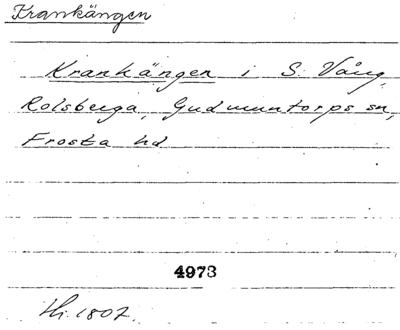 Krankängen
Krankängen i S. Vång,
Rolsberga, Gudmuntorps sn,
Frosta hd
4973
Hi. 1807.